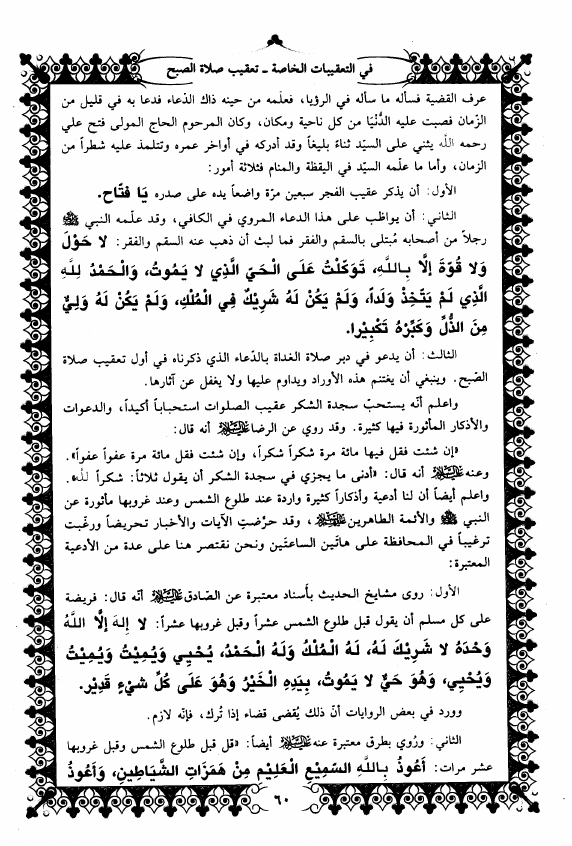 في التعقيبات الخاصة ـ تعقيب صلاة الصبح
عرف القضية فسأله ما سأله في الرؤيا، فعلّمه من حينه ذاك الدّعاء فدعا به في قليل من
الزّمان فصبت عليه الدُّنْيَا من كل ناحية ومكان، وكان المرحوم الحاج المولى فتح علي
رحمه اللَّه يثني على السيّد ثناءً بليغاً وقد أدركه في أواخر عمره وتتلمذ عليه شطراً من
الزمان، وأما ما علّمه السيّد في اليقظة والمنام فثلاثة أمور:
الأول: أن يذكر عقيب الفجر سبعين مرّة واضعاً يده على صدره يَا فَتَّاح.
الثاني: أن يواظب على هذا الدعاء المروي في الكافي، وقد علّمه النبي ﷺ
رجلاً من أصحابه مُبتلى بالسقم والفقر فما لبث أن ذهب عنه السقم والفقر: لا حَوْلَ
وَلا قُوَّةَ إلَّا بِاللَّهِ، تَوَكَّلْتُ عَلَى الْحَيِّ الَّذِي لا يَمُوتُ، وَالْحَمْدُ لِلَّهِ
الَّذِي لَمْ يَتَّخِذْ وَلَداً، وَلَمْ يَكُنْ لَهُ شَرِيكٌ فِي الْمُلْكِ، وَلَمْ يَكُنْ لَهُ وَلِيٌّ
مِنَ الذُّلِّ وَكَبِّرْهُ تَكْبِيْرا.
الثالث: أن يدعو في دبر صلاة الغداة بالدّعاء الذي ذكرناه في أول تعقيب صلاة
الصّبح. وينبغي أن يغتنم هذه الأوراد ويداوم عليها ولا يغفل عن آثارها.
واعلم أنّه يستحبّ سجدة الشكر عقيب الصلوات استحباباً أكيداً، والدعوات
والأذكار المأثورة فيها كثيرة. وقد روي عن الرضا عليه السلام أنه قال:
«إن شئت فقل فيها مائة مرة شكراً شكراً، وإن شئت فقل مائة مرة عفواً عفواً».
وعنه عليه السلام أنه قال: «أدنى ما يجزي في سجدة الشكر أن يقول ثلاثاً: شكراً للَّه».
واعلم أيضاً أن لنا أدعية وأذكاراً كثيرة واردة عند طلوع الشمس وعند غروبها مأثورة عن
النبي ﷺ والأئمة الطاهرين عليهم السلام، وقد حرّضتِ الآيات والأخبار تحريضاً ورغّبت
ترغيباً في المحافظة على هاتَين الساعتَين ونحن نقتصر هنا على عدة من الأدعية
المعتبرة:
الأول: روى مشايخ الحديث بأسناد معتبرة عن الصّادق عليه السلام أنّه قال: فريضة
على كل مسلم أن يقول قبل طلوع الشمس عشراً وقبل غروبها عشراً: لا إلهَ إلَّا اللَّهُ
وَحْدَهُ لا شَرِيكَ لَهُ، لَهُ الْمُلْكُ وَلَهُ الْحَمْدُ، يُحْيِي وَيُمِيْتُ وَيُمِيْتُ
وَيُحْيِي، وَهُوَ حَيٌّ لا يَمُوتُ، بِيَدِهِ الْخَيْرُ وَهُوَ عَلَى كُلِّ شَيْءٍ قَدِيْر.
وورد في بعض الروايات أنّ ذلك يُقضى قضاء إذا تُرك، فإنّه لازم.
الثاني: ورُوي بطرق معتبرة عنه عليه السلام أيضاً: «قل قبل طلوع الشمس وقبل غروبها
عشر مرات: أَعُوذُ بِاللَّهِ السَّمِيعِ الْعَلِيْمِ مِنْ هَمَزَاتِ الشَّيَاطِيْنِ، وَأَعُوذُ
٦٠